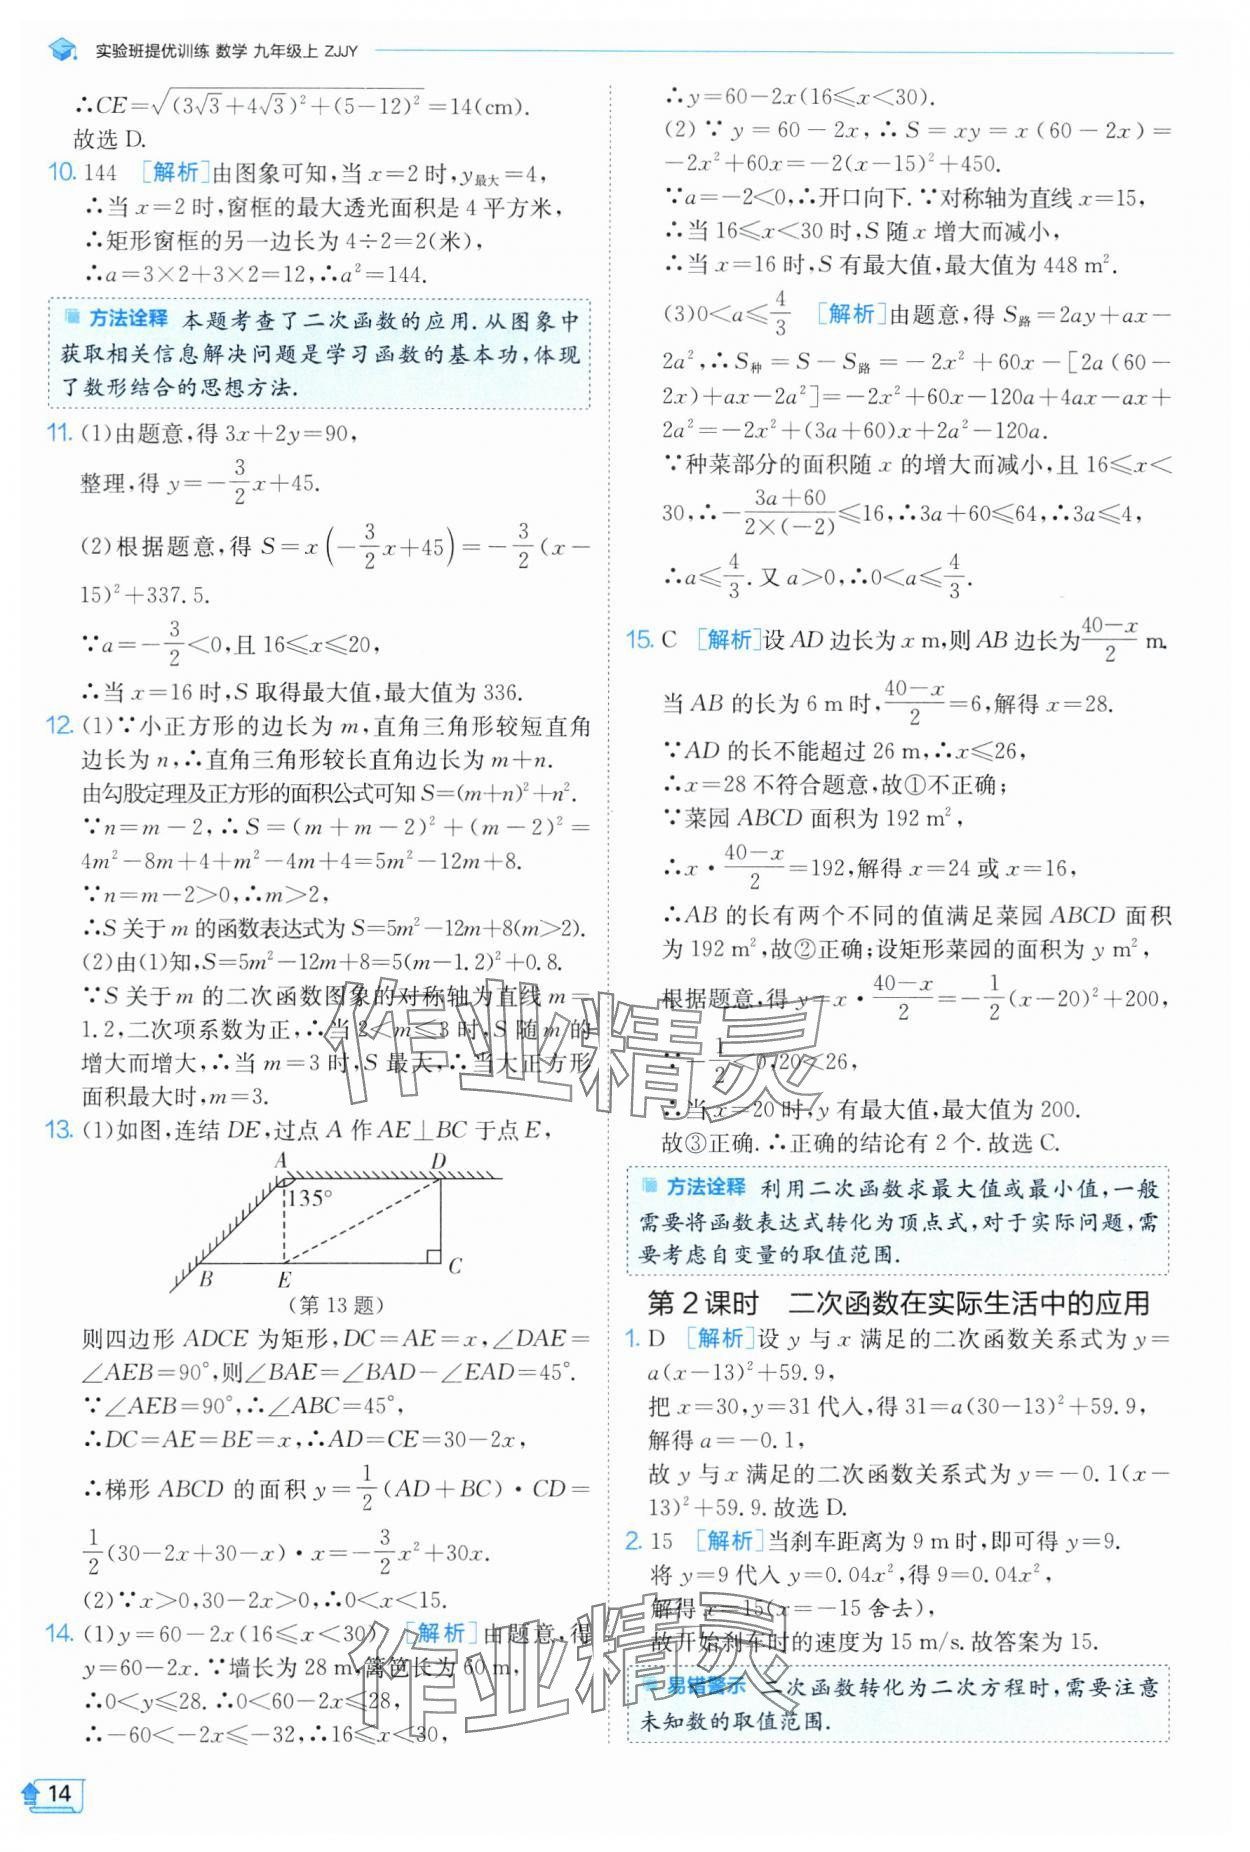 实验班提优训练 数学 九年级上 ZJJY
∴CE=√((3√3+4√3)²+(5-12)²)=14(cm).
故选 D.
10. 144 [解析]由图象可知,当 x=2 时,y最大=4,
∴当 x=2 时,窗框的最大透光面积是 4 平方米,
∴矩形窗框的另一边长为 4÷2=2(米),
∴a=3×2+3×2=12,∴a²=144.
方法诠释 本题考查了二次函数的应用.从图象中
获取相关信息解决问题是学习函数的基本功,体现
了数形结合的思想方法.
11. (1)由题意,得 3x+2y=90,
整理,得 y=-3/2x+45.
(2)根据题意,得 S=x(-3/2x+45)=-3/2(x-
15)²+337.5.
∵a=-3/2<0,且 16≤x≤20,
∴当 x=16 时,S 取得最大值,最大值为 336.
12. (1)∵小正方形的边长为 m,直角三角形较短直角
边长为 n,∴直角三角形较长直角边长为 m+n.
由勾股定理及正方形的面积公式可知 S=(m+n)²+n².
∵n=m-2,∴S=(m+m-2)²+(m-2)²=
4m²-8m+4+m²-4m+4=5m²-12m+8.
∵n=m-2>0,∴m>2,
∴S 关于 m 的函数表达式为 S=5m²-12m+8(m>2).
(2)由(1)知,S=5m²-12m+8=5(m-1.2)²+0.8.
∵S 关于 m 的二次函数图象的对称轴为直线 m=
1.2,二次项系数为正,∴当 2<m≤3 时,S 随 m 的
增大而增大,∴当 m=3 时,S 最大,∴当大正方形
面积最大时,m=3.
13. (1)如图,连结 DE,过点 A 作 AE⊥BC 于点 E,
A D
135°
B E C
(第 13 题)
则四边形 ADCE 为矩形,DC=AE=x,∠DAE=
∠AEB=90°,则∠BAE=∠BAD-∠EAD=45°.
∵∠AEB=90°,∴∠ABC=45°,
∴DC=AE=BE=x,∴AD=CE=30-2x,
∴梯形 ABCD 的面积 y=1/2(AD+BC)·CD=
1/2(30-2x+30-x)·x=-3/2x²+30x.
(2)∵x>0,30-2x>0,∴0<x<15.
14. (1)y=60-2x(16≤x<30) [解析]由题意,得
y=60-2x.∵墙长为 28 m,篱笆长为 60 m,
∴0<y≤28.∴0<60-2x≤28,
∴-60<-2x≤-32,∴16≤x<30,
14
∴y=60-2x(16≤x<30).
(2)∵y=60-2x,∴S=xy=x(60-2x)=
-2x²+60x=-2(x-15)²+450.
∵a=-2<0,∴开口向下.∵对称轴为直线 x=15,
∴当 16≤x<30 时,S 随 x 增大而减小,
∴当 x=16 时,S 有最大值,最大值为 448 m².
(3)0<a≤4/3 [解析]由题意,得 S路=2ay+ax-
2a²,∴S种=S-S路=-2x²+60x-[2a(60-
2x)+ax-2a²]=-2x²+60x-120a+4ax-ax+
2a²=-2x²+(3a+60)x+2a²-120a.
∵种菜部分的面积随 x 的增大而减小,且 16≤x<
30,∴-(3a+60)/(2×(-2))≤16,∴3a+60≤64,∴3a≤4,
∴a≤4/3.又 a>0,∴0<a≤4/3.
15. C [解析]设 AD 边长为 x m,则 AB 边长为(40-x)/2 m.
当 AB 的长为 6 m 时,(40-x)/2=6,解得 x=28.
∵AD 的长不能超过 26 m,∴x≤26,
∴x=28 不符合题意,故①不正确;
∵菜园 ABCD 面积为 192 m²,
∴x·(40-x)/2=192,解得 x=24 或 x=16,
∴AB 的长有两个不同的值满足菜园 ABCD 面积
为 192 m²,故②正确;设矩形菜园的面积为 y m²,
根据题意,得 y=x·(40-x)/2=-1/2(x-20)²+200,
∵-1/2<0,20<26,
∴当 x=20 时,y 有最大值,最大值为 200.
故③正确.∴正确的结论有 2 个.故选 C.
方法诠释 利用二次函数求最大值或最小值,一般
需要将函数表达式转化为顶点式,对于实际问题,需
要考虑自变量的取值范围.
第 2 课时 二次函数在实际生活中的应用
1. D [解析]设 y 与 x 满足的二次函数关系式为 y=
a(x-13)²+59.9,
把 x=30,y=31 代入,得 31=a(30-13)²+59.9,
解得 a=-0.1,
故 y 与 x 满足的二次函数关系式为 y=-0.1(x-
13)²+59.9.故选 D.
2. 15 [解析]当刹车距离为 9 m 时,即可得 y=9.
将 y=9 代入 y=0.04x²,得 9=0.04x²,
解得 x=15(x=-15 舍去),
故开始刹车时的速度为 15 m/s.故答案为 15.
易错警示 二次函数转化为二次方程时,需要注意
未知数的取值范围.
作业精灵
作业精灵